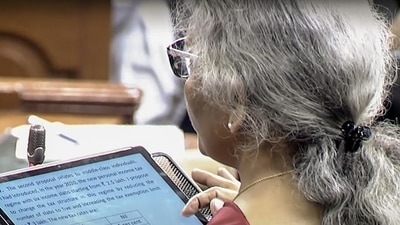 The second proposal relates to middle-class individuals. I
had introduced, in the year 2020, the new personal income tax
regime with six income slabs starting from ₹ 2.5 lakh. I propose
to change the tax structure in this regime by reducing the
number of slabs to five and increasing the tax exemption limit
₹ 3 lakh. The new tax rates are:
Nil